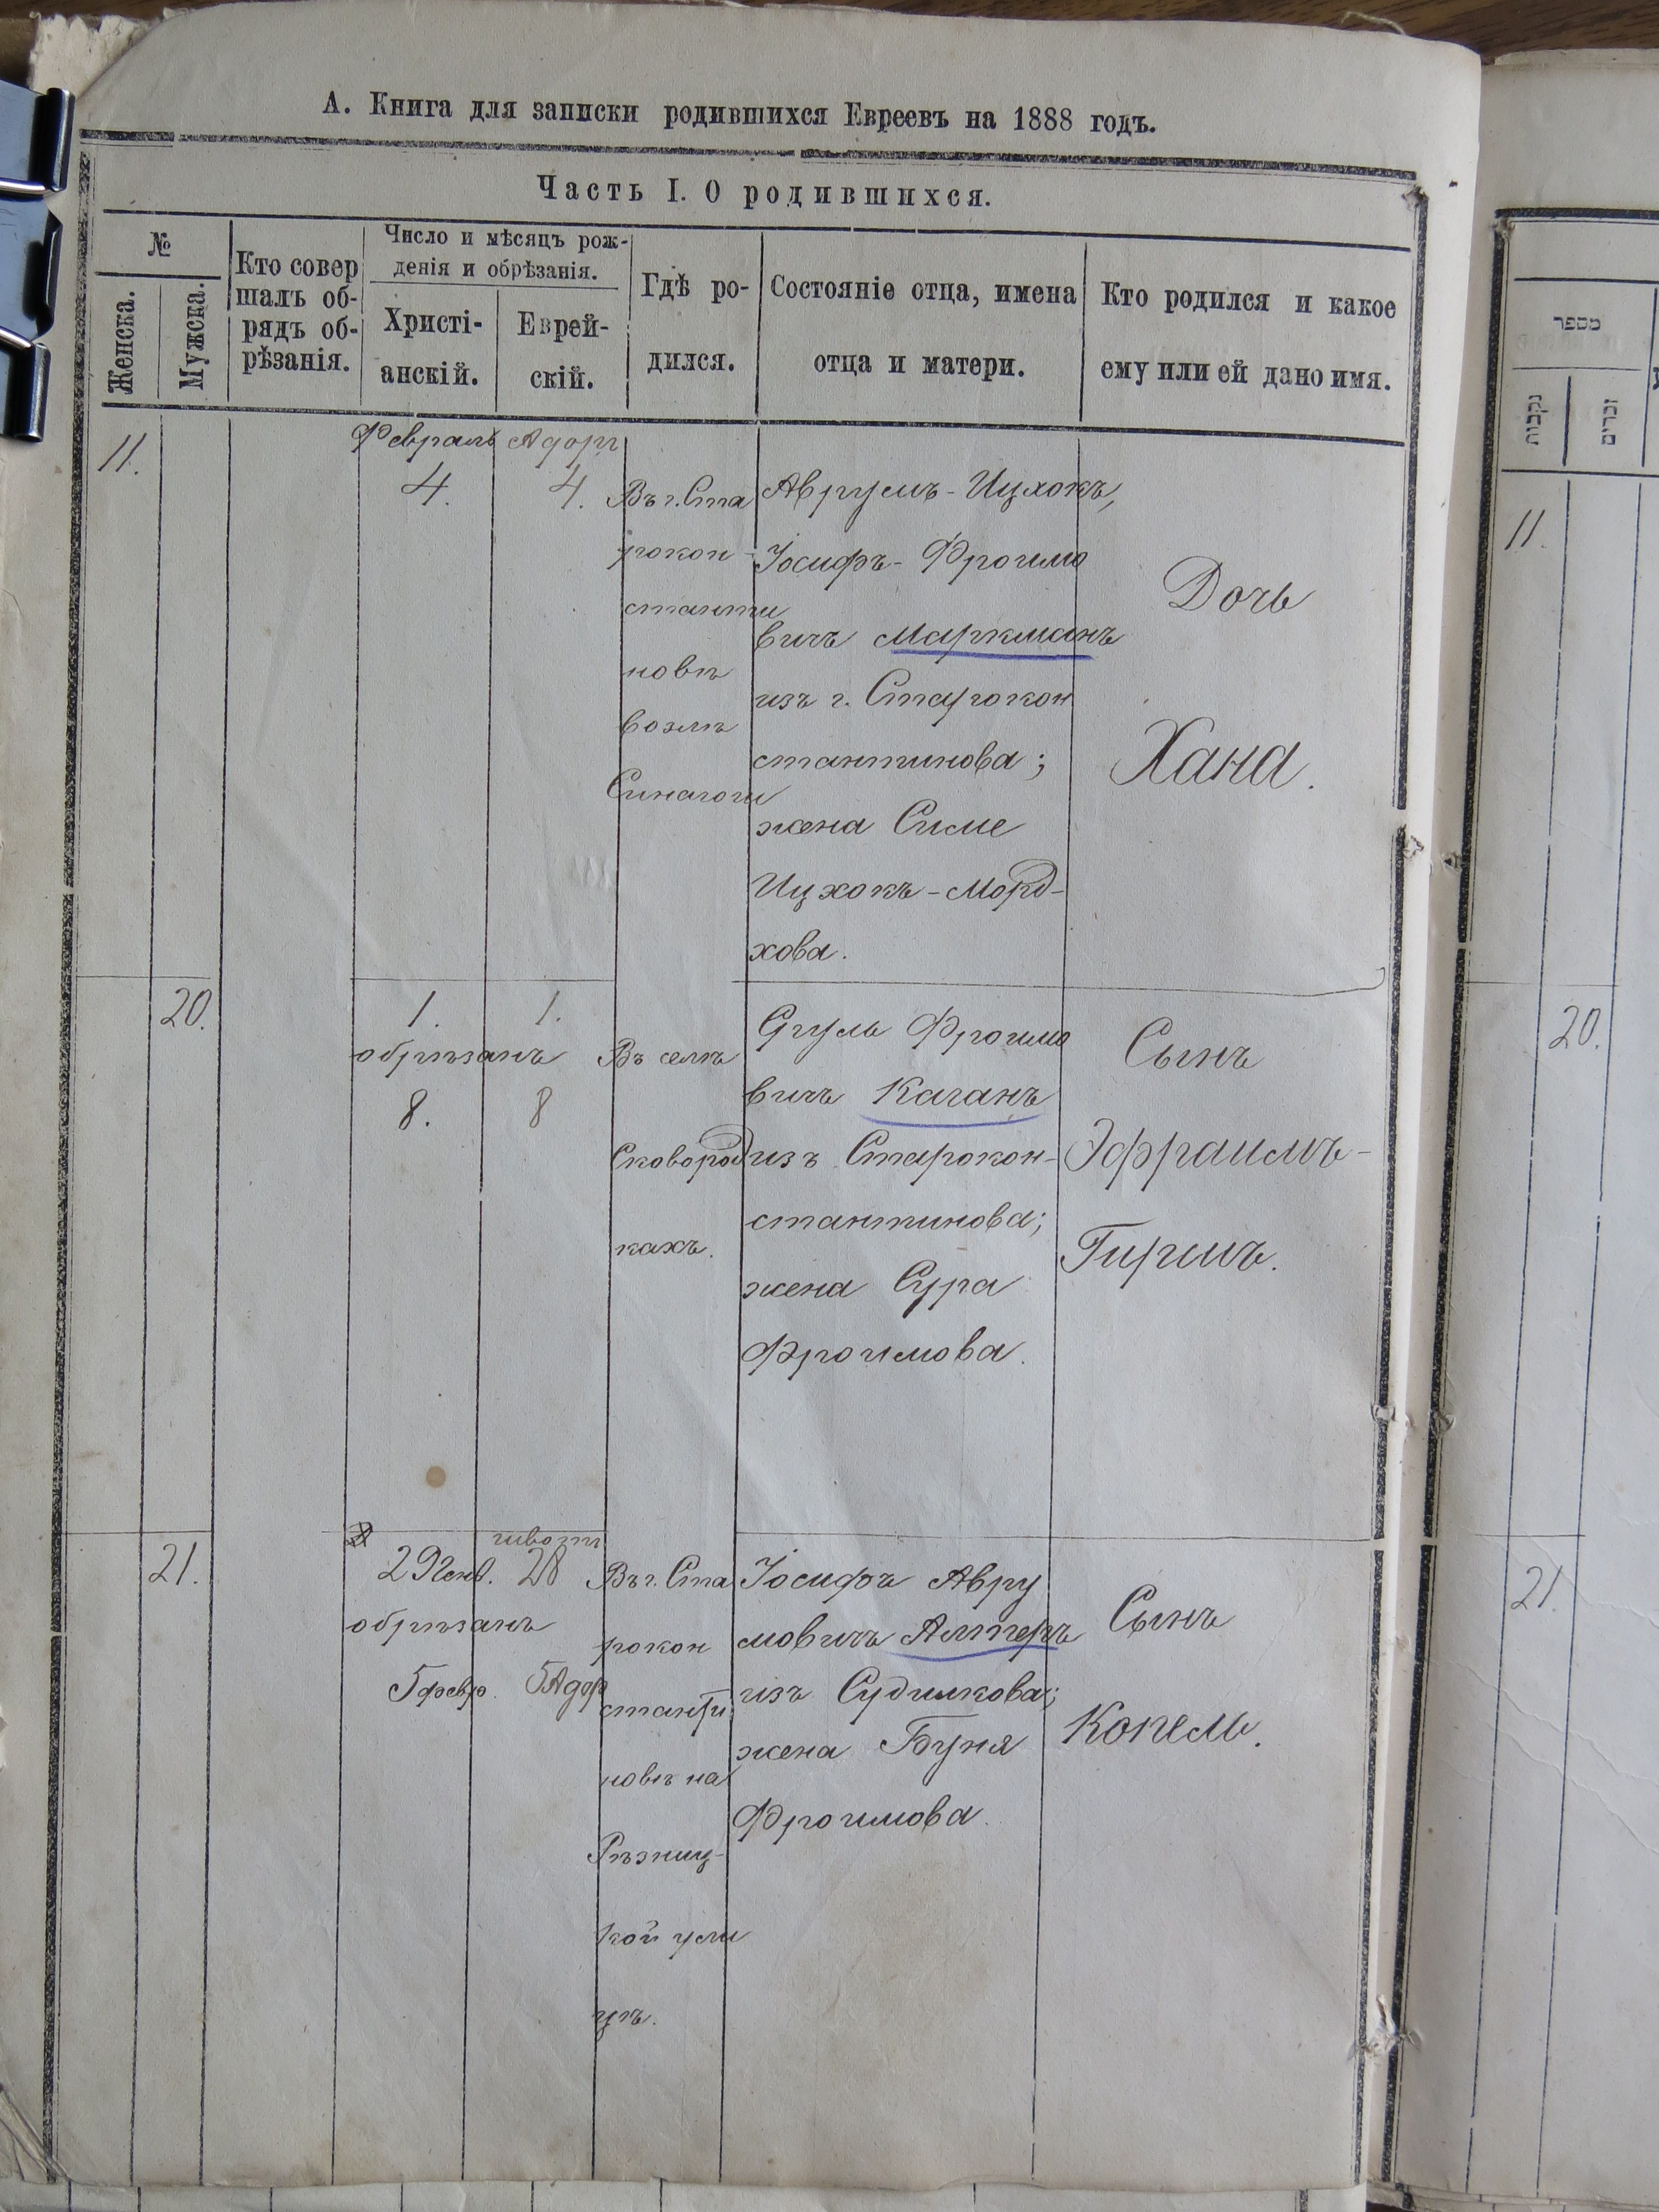 А. Книга для записки родившихся Евреевъ на 1888 годъ.
Часть I. О родившихся.
№
Женска.
Мужска.
Кто совер
шалъ об-
рядъ об-
рѣзанія.
Число и мѣсяцъ рож-
денія и обрѣзанія.
Христі-
анскій.
Еврей-
скій.
Гдѣ ро-
дился.
Состояніе отца, имена
отца и матери.
Кто родился и какое
ему или ей дано имя.
11.
Февраль
4.
Адоръ
4.
Въ г. Ста
рокон
станти
новѣ
возлѣ
Синагоги
Аврумъ-Ицхокъ,
Іосифъ-Фроимо
вичъ Маркманъ
изъ г. Старокон
стантинова;
жена Симе
Ицхокъ-Морд-
хова.
Дочь
Хана.
20.
1.
обрѣзанъ
8.
1.
8
Въ селѣ
Сковород
кахъ.
Сруль Фроимо
вичъ Каганъ
изъ Старокон-
стантинова;
жена Сура
Фроимова.
Сынъ
Эфраимъ-
Гиршъ.
21.
29 Генв.
обрѣзанъ
5 февр.
шво
28
5 Адор
Въ г. Ста
рокон
станти
новѣ на
Рѣзниц-
кой ули
цѣ.
Іосифъ Авру
мовичъ Алтеръ
изъ Судилкова;
жена Буня
Фроимова.
Сынъ
Копель.
מספר
נקבות
זכרים
11.
20.
21.